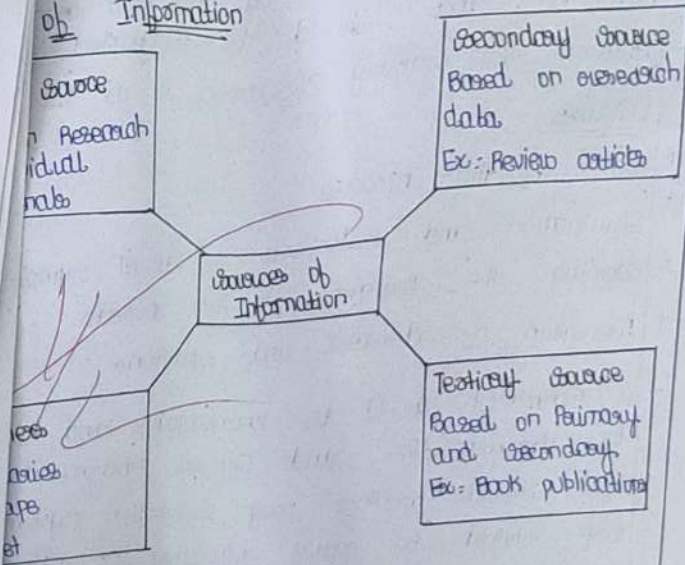 of Information
Source
Research
idual
nals
Secondary Source
Based on research
data
Ex: Review articles
Sources of
Information
Tertiary Source
Based on Primary
and secondary
Ex: Book publications
ies
aries
aps
et